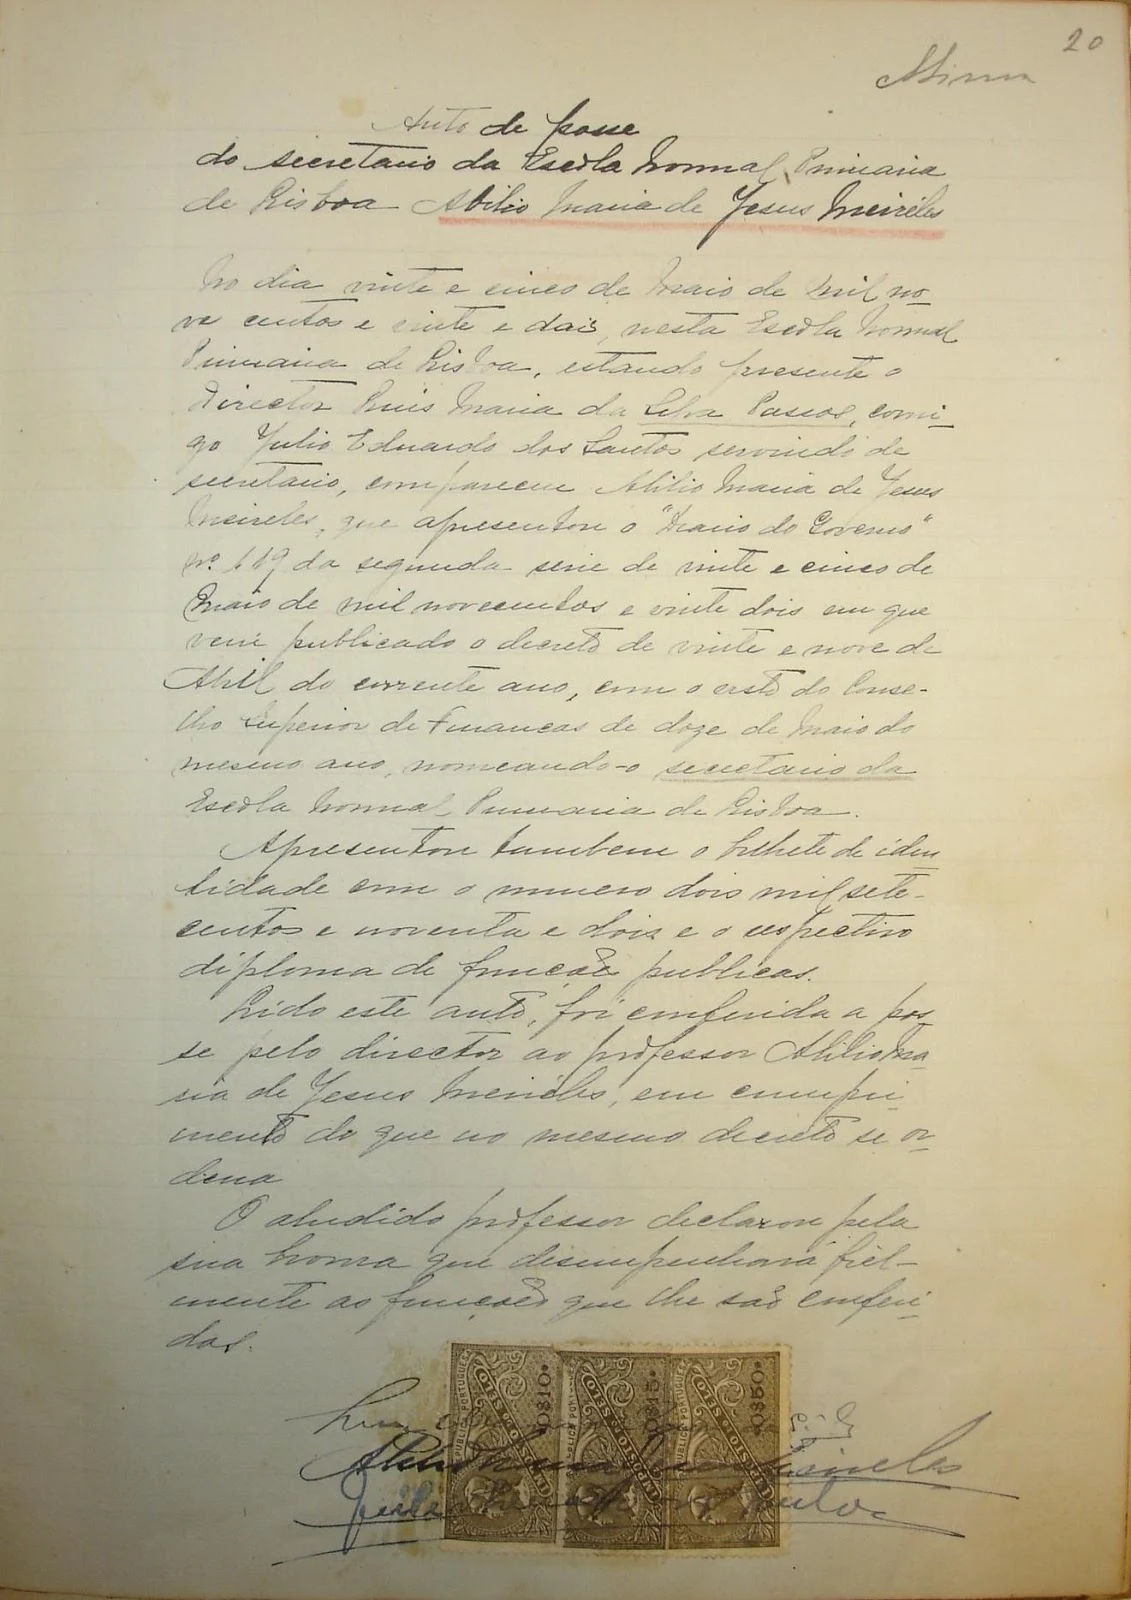 20
Auto de posse
do secretario da Escola Normal Primaria
de Lisboa Abilio Maria de Jesus Meireles
No dia vinte e cinco de Maio de mil no-
ve centos e vinte e dois, nesta Escola Normal
Primaria de Lisboa, estando presente o
Director Luis Maria da Silva Passos, comi-
go Julio Eduardo dos Santos servindo de
secretario, compareceu Abilio Maria de Jesus
Meireles, que apresentou o "Diario do Governo"
nº 119 da segunda serie de vinte e cinco de
Maio de mil novecentos e vinte dois em que
vem publicado o decreto de vinte e nove de
Abril do corrente ano, com o visto do Conse-
lho Superior de Financas de doze de Maio do
mesmo ano, nomeando-o secretario da
Escola Normal Primaria de Lisboa.
Apresentou tambem o bilhete de iden
tidade com o numero dois mil sete-
centos e noventa e dois e o respectivo
diploma de funções publicas.
Lido este auto, foi conferida a pos-
se pelo director ao professor Abilio Ma
ria de Jesus Meireles, em cumpri-
mento do que no mesmo decreto se or-
dena
O aludido professor declarou pela
sua honra que desempenhará fiel-
mente as funções que lhe são conferi-
das.
REPUBLICA PORTUGUESA
IMPOSTO DO SELO
0$10
IMPOSTO DO SELO
0$15
IMPOSTO DO SELO
0$50
Meireles